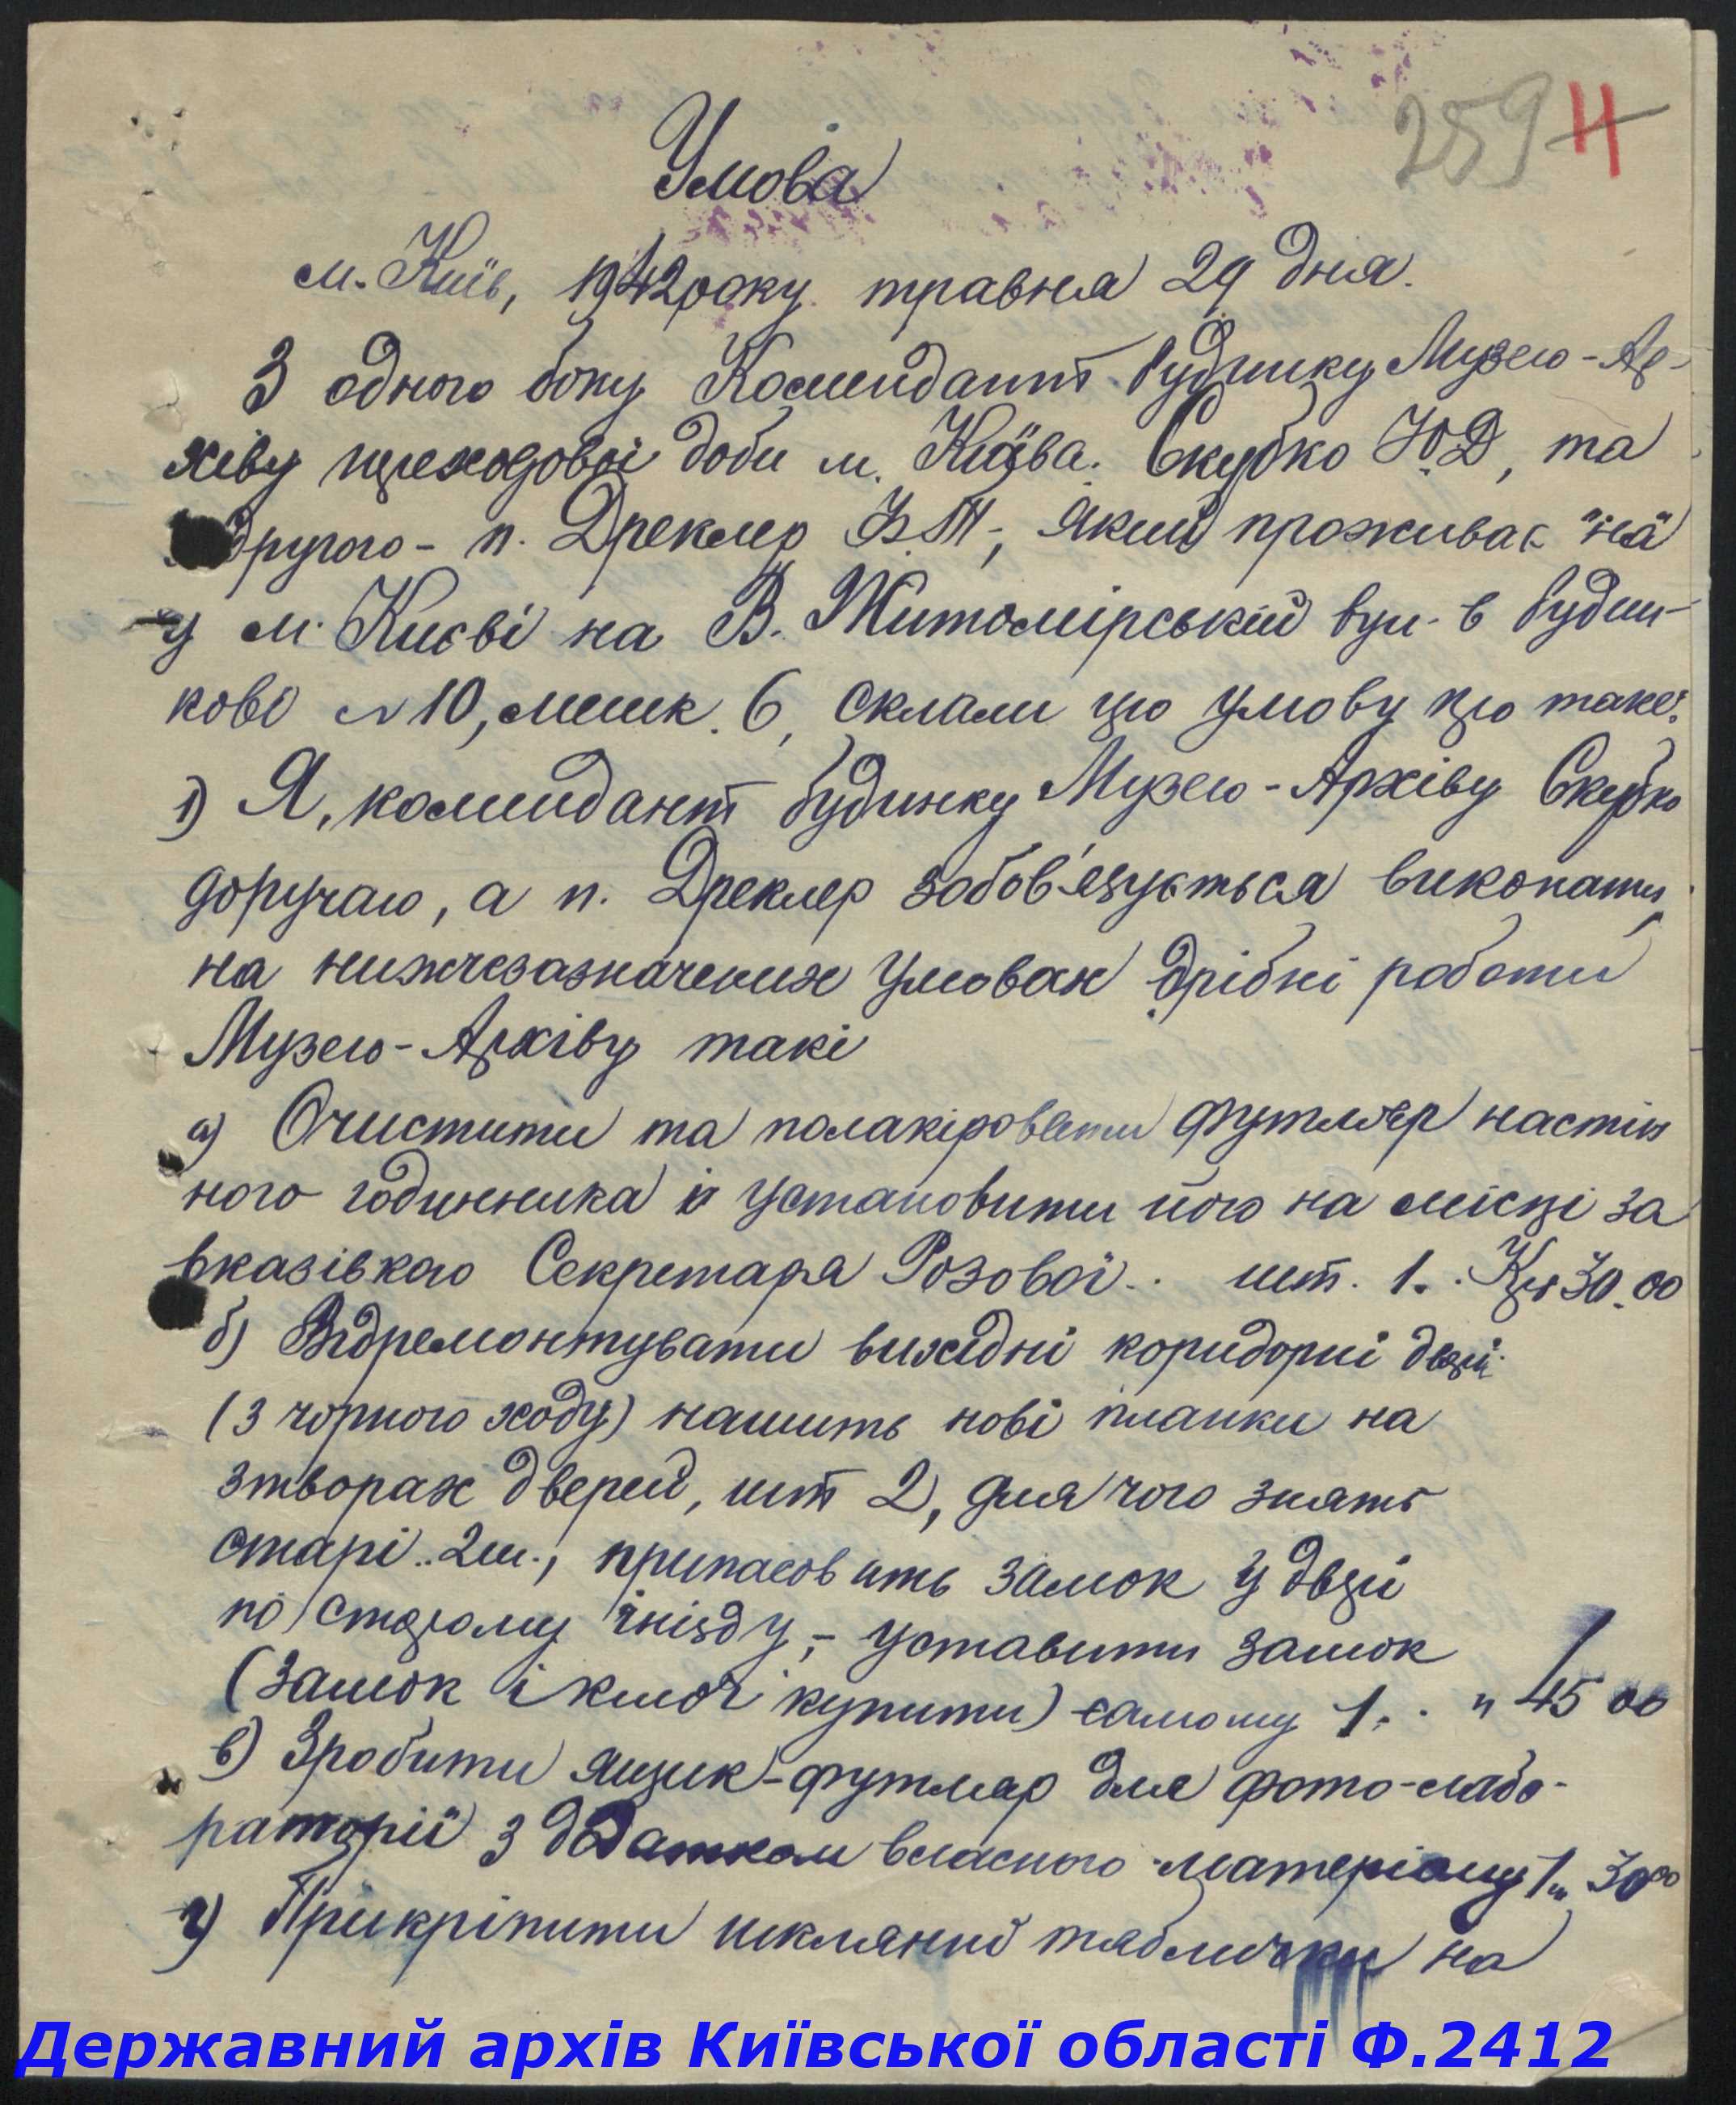 259 4
Умова
м. Київ, 1942 року травня 29 дня.
З одного боку Комендант будинку Музею-Ар-
хіву переходової доби м. Київа. Скубко Ю.Д, та
другого - п. Дреклер В.Т-, який проживає "на"
у м. Києві на В. Житомірській вул. в будин-
кові № 10, мешк. 6, склали цю умову про таке:
1) Я, комендант будинку Музею-Архіву Скубко
доручаю, а п. Дреклер зобов'язується виконати,
на нижчезазначених умовах дрібні роботи
Музею-Архіву такі
а) Очистити та полакіровати футляр настін
ного годинника й установити його на місці за
вказівкою Секретаря Розової.. шт. 1.. Крб 30.00
б) Відремонтувати вихідні коридорні двері
(з чорного ходу) нашить нові планки на
зтворах дверей, шт 2, для чого знять
старі.. 2ш., припасовить замок у двері
по старому гнізду, - уставити замок
(замок і ключ купити) самому 1.. " 45 00
в) Зробити ящик-футляр для фото-лабо-
раторії з додатком власного матеріалу 1" 30 00
г) Прикріпити шкляний таблички на
Державний архів Київської області Ф.2412